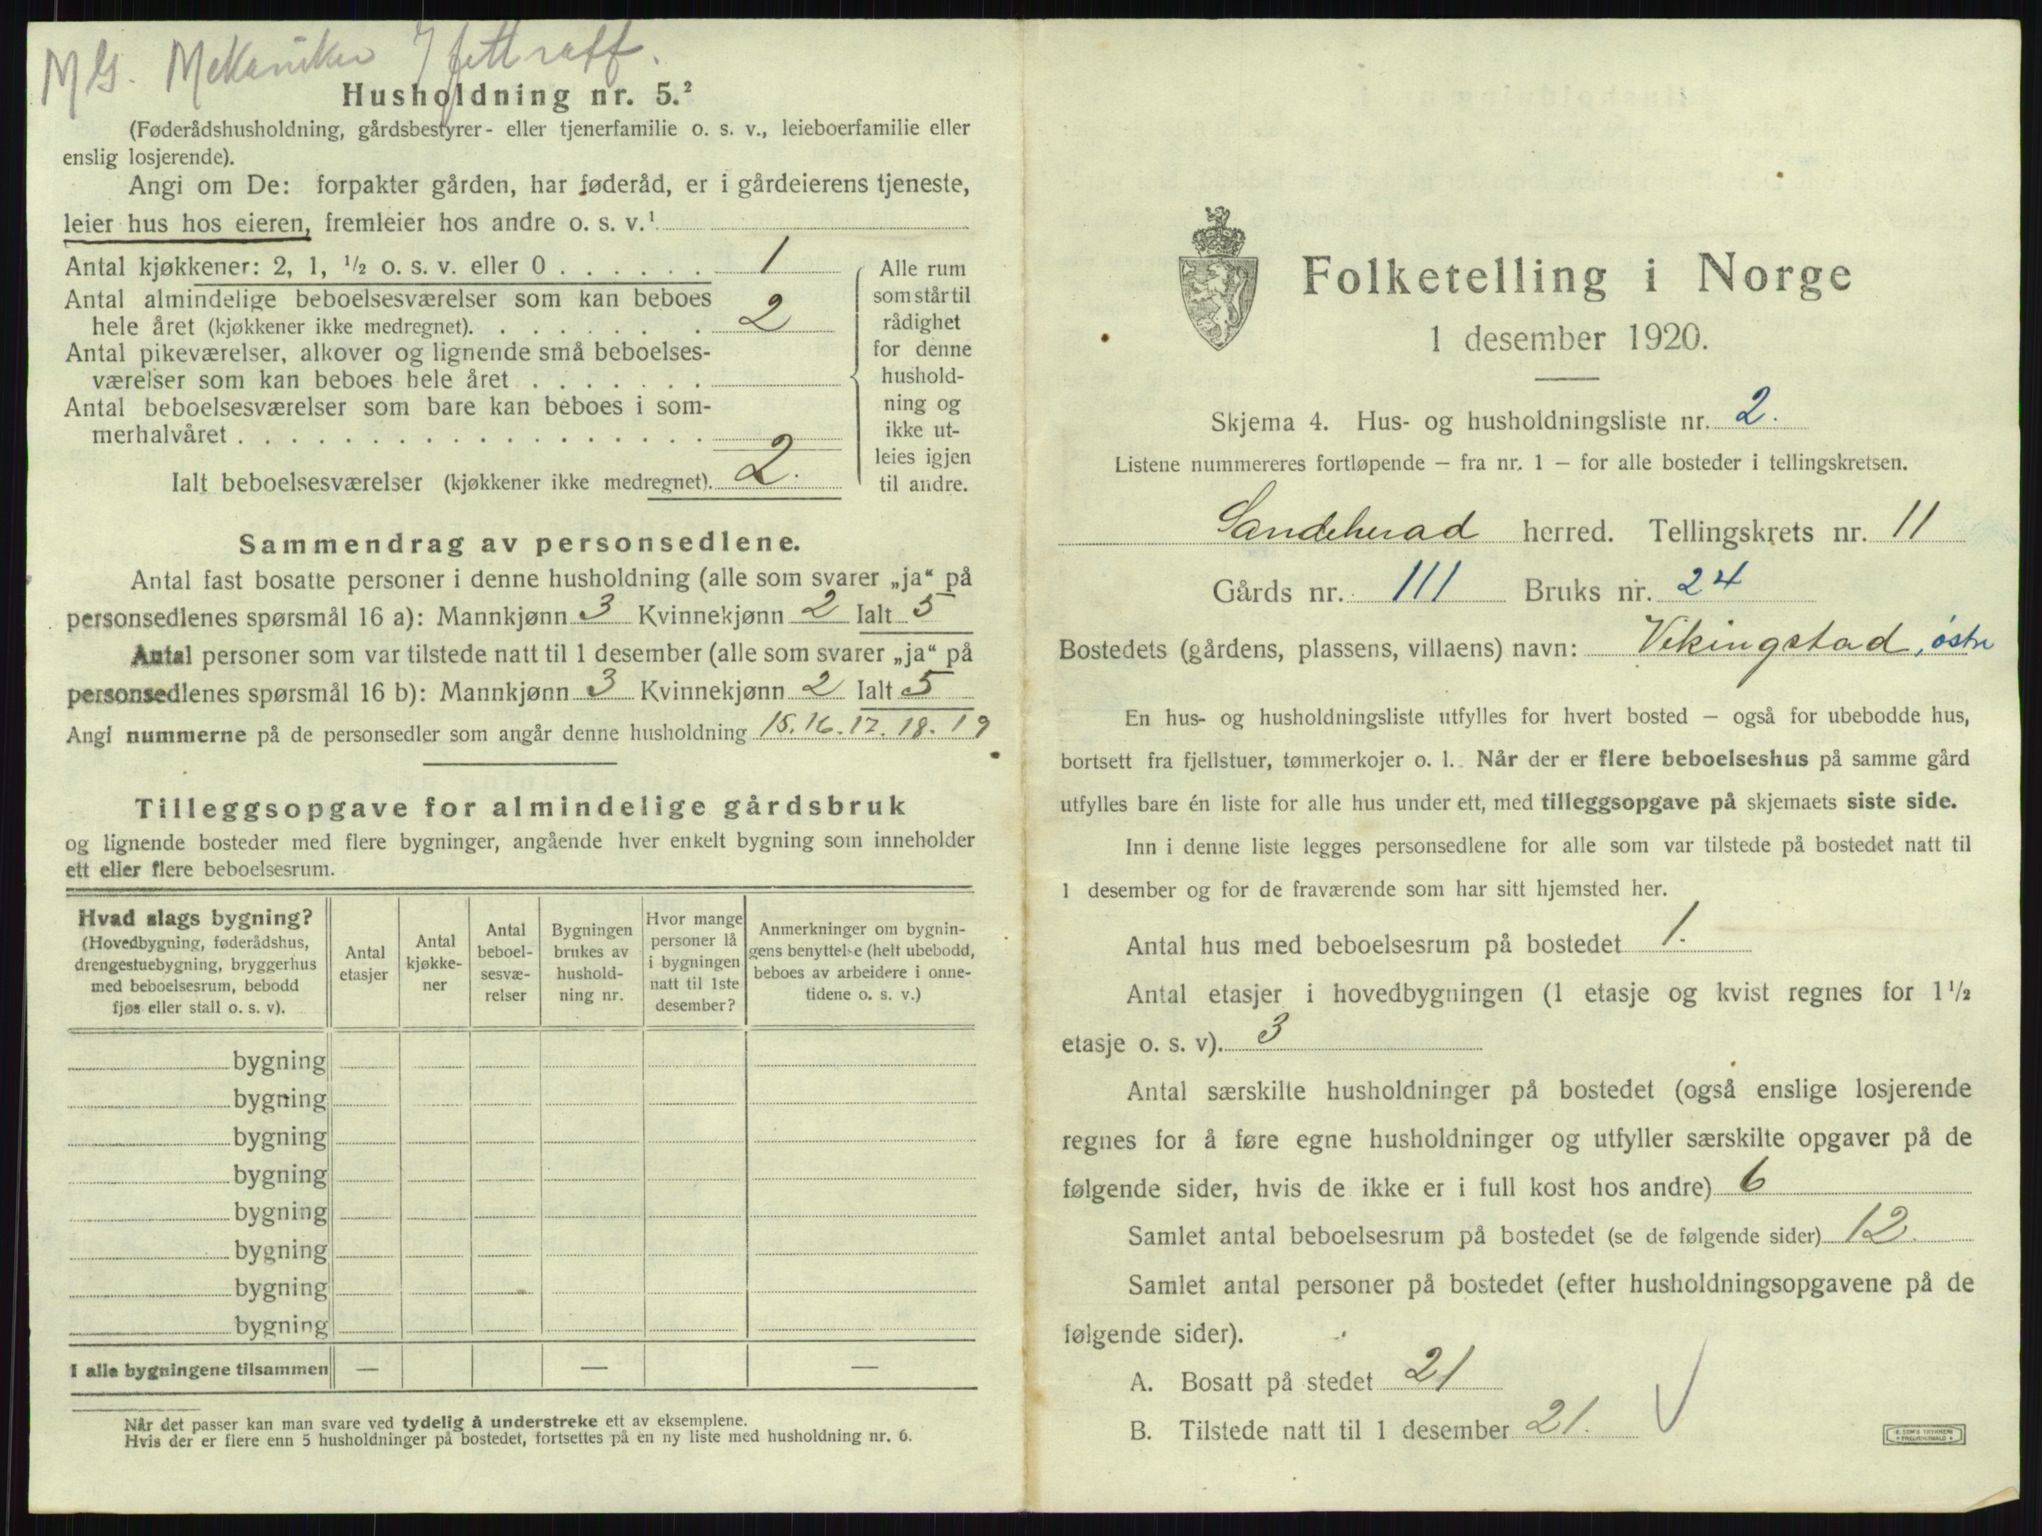 MG. Mekaniker
Husholdning nr. 5.²
(Føderådshusholdning, gårdsbestyrer- eller tjenerfamilie o. s. v., leieboerfamilie eller
enslig losjerende).
Angi om De: forpakter gården, har føderåd, er i gårdeierens tjeneste,
leier hus hos eieren, fremleier hos andre o. s. v.¹
Antal kjøkkener: 2, 1, ½ o. s. v. eller 0 . . . . . . 1
Antal almindelige beboelsesværelser som kan beboes
hele året (kjøkkener ikke medregnet). . . . . . . . 2
Antal pikeværelser, alkover og lignende små beboelses-
værelser som kan beboes hele året . . . . . . .
Antal beboelsesværelser som bare kan beboes i som-
merhalvåret . . . . . . . . . . . . . . . . . .
Ialt beboelsesværelser (kjøkkener ikke medregnet). 2.
Alle rum
som står til
rådighet
for denne
hushold-
ning og
ikke ut-
leies igjen
til andre.
Sammendrag av personsedlene.
Antal fast bosatte personer i denne husholdning (alle som svarer „ja“ på
personsedlenes spørsmål 16 a): Mannkjønn 3 Kvinnekjønn 2 Ialt 5
Antal personer som var tilstede natt til 1 desember (alle som svarer „ja“ på
personsedlenes spørsmål 16 b): Mannkjønn 3 Kvinnekjønn 2 Ialt 5
Angi nummerne på de personsedler som angår denne husholdning 15. 16. 17. 18. 19
Tilleggsopgave for almindelige gårdsbruk
og lignende bosteder med flere bygninger, angående hver enkelt bygning som inneholder
ett eller flere beboelsesrum.
Hvad slags bygning?
(Hovedbygning, føderådshus,
drengestuebygning, bryggerhus
med beboelsesrum, bebodd
fjøs eller stall o. s. v).
Antal
etasjer
Antal
kjøkke-
ner
Antal
beboel-
sesvæ-
relser
Bygningen
brukes av
hushold-
ning nr.
Hvor mange
personer lå
i bygningen
natt til 1ste
desember?
Anmerkninger om bygnin-
gens benyttelse (helt ubebodd,
beboes av arbeidere i onne-
tidene o. s. v.)
bygning
bygning
bygning
bygning
bygning
bygning
bygning
bygning
I alle bygningene tilsammen — — —
Når det passer kan man svare ved tydelig å understreke ett av eksemplene.
Hvis der er flere enn 5 husholdninger på bostedet, fortsettes på en ny liste med husholdning nr. 6.
Folketelling i Norge
1 desember 1920.
Skjema 4. Hus- og husholdningsliste nr. 2.
Listene nummereres fortløpende — fra nr. 1 — for alle bosteder i tellingskretsen.
Sandeherad herred. Tellingskrets nr. 11
Gårds nr. 111 Bruks nr. 24
Bostedets (gårdens, plassens, villaens) navn: Vikingstad, østre
En hus- og husholdningsliste utfylles for hvert bosted — også for ubebodde hus,
bortsett fra fjellstuer, tømmerkojer o. l. Når der er flere beboelseshus på samme gård
utfylles bare én liste for alle hus under ett, med tilleggsopgave på skjemaets siste side.
Inn i denne liste legges personsedlene for alle som var tilstede på bostedet natt til
1 desember og for de fraværende som har sitt hjemsted her.
Antal hus med beboelsesrum på bostedet 1.
Antal etasjer i hovedbygningen (1 etasje og kvist regnes for 1½
etasje o. s. v). 3
Antal særskilte husholdninger på bostedet (også enslige losjerende
regnes for å føre egne husholdninger og utfyller særskilte opgaver på de
følgende sider, hvis de ikke er i full kost hos andre) 6
Samlet antal beboelsesrum på bostedet (se de følgende sider) 12.
Samlet antal personer på bostedet (efter husholdningsopgavene på de
følgende sider).
A. Bosatt på stedet 21
B. Tilstede natt til 1 desember 21.